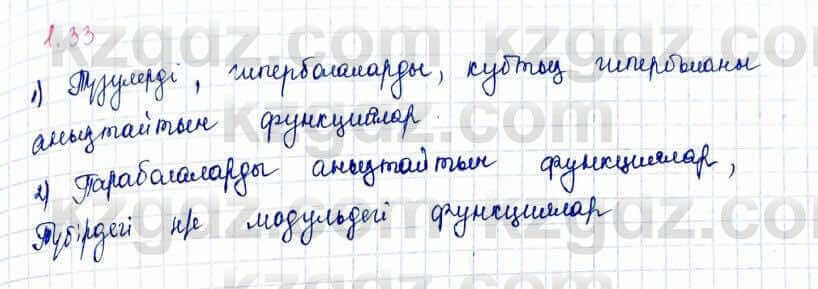 1.33
1) Түзулерді, гиперболаларды, кубтық гиперболаны
анықтайтын функциялар.
2) Параболаларды анықтайтын функциялар,
Түбірдегі н/е модульдегі функциялар
kzgdz.com